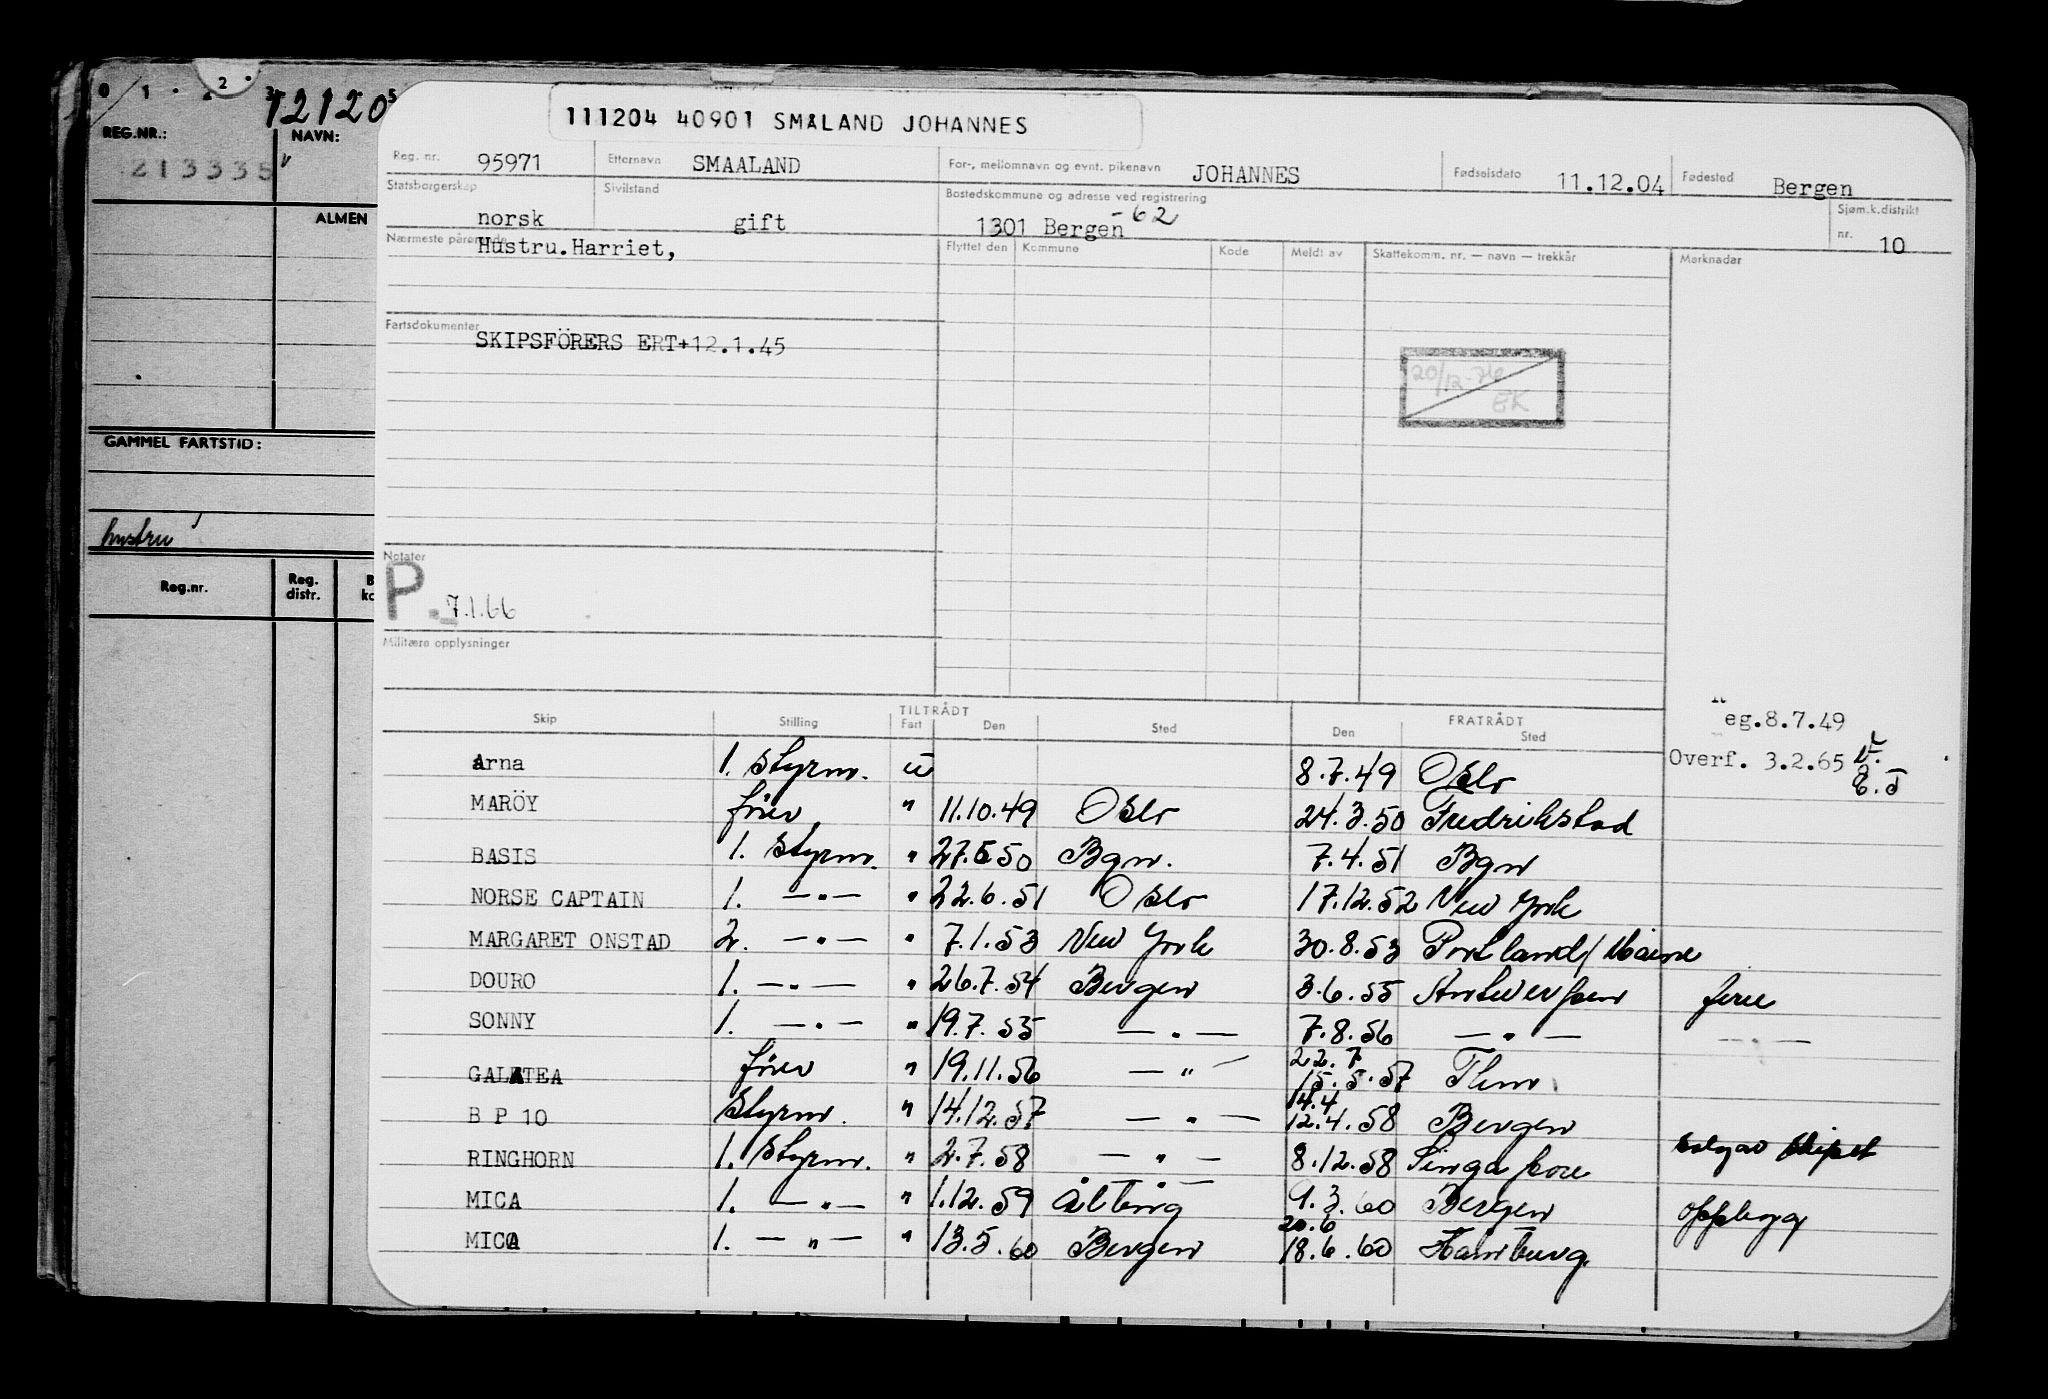 0 1 2 3 5
12120
REG.NR.: NAVN:
213335
ALMEN
GAMMEL FARTSTID:
hustru
Reg.nr. Reg. distr. B ko
111204 40901 SMÅLAND JOHANNES
Reg. nr. 95971 Etternavn SMAALAND For-, mellomnavn og evnt. pikenavn JOHANNES Fødselsdato 11.12.04 Fødested Bergen
Statsborgerskap norsk Sivilstand gift Bostedskommune og adresse ved registrering 1301 Bergen -62 Sjøm.k.distrikt nr. 10
Nærmeste pårørende Hustru.Harriet, Flyttet den Kommune Kode Meldt av Skattekomm. nr. — navn — trekkår Merknader
Fartsdokumenter
SKIPSFÖRERS ERT+12.1.45
20/12-76
EK
Notater
P. 7.1.66
Militære opplysninger
eg.8.7.49
Overf. 3.2.65
E.J
TILTRÅDT FRATRÅDT
Skip Stilling Fart Den Sted Den Sted
Arna 1. Styrm. u 8.7.49 Oslo
MARÖY förer " 11.10.49 Oslo 24.3.50 Fredrikstad
BASIS 1. Styrm. " 27.5.50 Bgn. 7.4.51 Bgn
NORSE CAPTAIN 1. — " — " 22.6.51 Oslo 17.12.52 New York
MARGARET ONSTAD 2. — " — " 7.1.53 New York 30.8.53 Portland/Maine
DOURO 1. — " — " 26.7.54 Bergen 3.6.55 Antwerpen ferie
SONNY 1. — " — " 19.7.55 — " — 7.8.56 — " — — " —
GALATEA förer " 19.11.56 — " — 22.7 15.5.57 Thm
B P 10 Styrm. " 14.12.57 — " — 14.4 12.4.58 Bergen
RINGHORN 1. Styrm. " 2.7.58 — " — 8.12.58 Singapore solgav skipet
MICA 1. — " — " 1.12.59 9.3.60 Bergen opplegg
MICA 1. — " — " 13.5.60 Bergen 20.6 18.6.60 Hamburg.